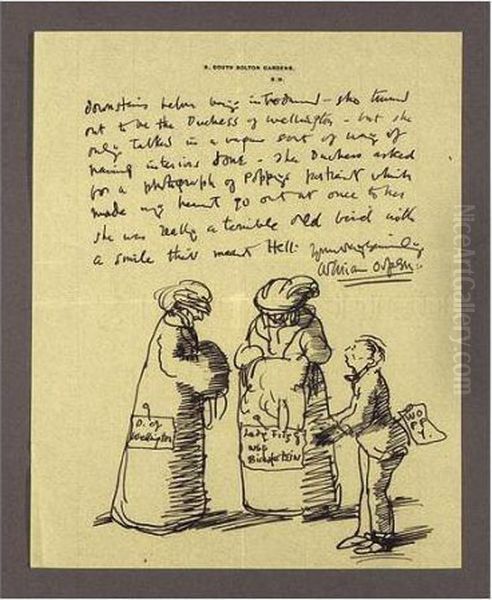 8, SOUTH BOLTON GARDENS,
S.W.
downstairs before being introduced – she turned
out to be the Duchess of Wellington – but she
only talked in a vague sort of way of
having interiors done – The Duchess asked
for a photograph of Poppy's portrait which
made my heart go out at once to her
she was really a terrible old bird with
a smile that meant Hell.
William Orpen
D. of
Wellington
Lady Fitz
née
Bischoffstein
WO
PS
Y.
NiceArtGallery.com